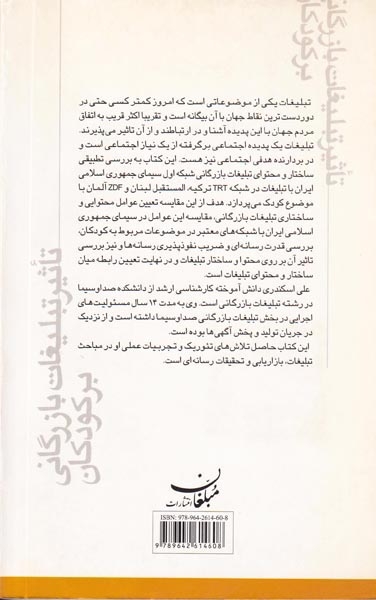 تأثیر تبلیغات بازرگانی
بر کودکان
تبلیغات یکی از موضوعاتی است که امروز کمتر کسی حتی در
دوردست ترین نقاط جهان با آن بیگانه است و تقریبا اکثر قریب به اتفاق
مردم جهان با این پدیده آشنا و در ارتباطند و از آن تاثیر می‌پذیرند.
تبلیغات یک پدیده اجتماعی برگرفته از یک نیاز اجتماعی است و
در بردارنده هدفی اجتماعی نیز هست. این کتاب به بررسی تطبیقی
ساختار و محتوای تبلیغات بازرگانی شبکه اول سیمای جمهوری اسلامی
ایران با تبلیغات در شبکه TRT ترکیه، المستقبل لبنان و ZDF آلمان با
موضوع کودک می‌پردازد. هدف از این مقایسه تعیین عوامل محتوایی و
ساختاری تبلیغات بازرگانی، مقایسه این عوامل در سیمای جمهوری
اسلامی ایران با شبکه‌های معتبر در موضوعات مربوط به کودکان،
بررسی قدرت رسانه‌ای و ضریب نفوذپذیری رسانه‌ها و نیز بررسی
تاثیر آن بر روی محتوا و ساختار تبلیغات و در نهایت تعیین رابطه میان
ساختار و محتوای تبلیغات است.
علی اسکندری دانش آموخته کارشناسی ارشد از دانشکده صداوسیما
در رشته تبلیغات بازرگانی است. وی به مدت ۱۳ سال مسئولیت‌های
اجرایی در بخش تبلیغات بازرگانی صداوسیما داشته است و از نزدیک
در جریان تولید و پخش آگهی‌ها بوده است.
این کتاب حاصل تلاش‌های تئوریک و تجربیات عملی او در مباحث
تبلیغات، بازاریابی و تحقیقات رسانه‌ای است.
تأثیر تبلیغات بازرگانی
بر کودکان
مبلّغان
انتشارات
ISBN: 978-964-2614-60-8
9 789642 614608